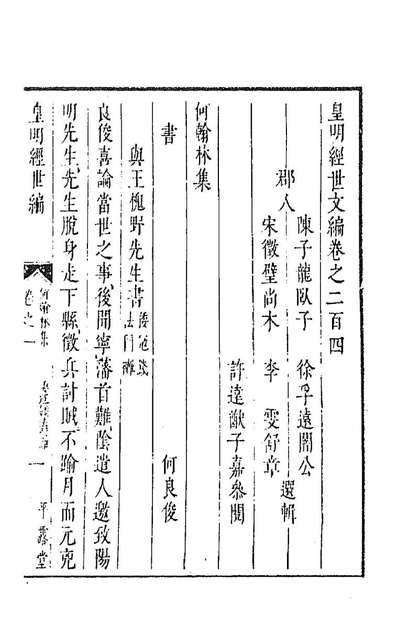 皇明經世文編卷之二百四
郡人
陳子龍臥子 徐孚遠闇公
宋徵璧尚木 李雯舒章 選輯
許遠猷子嘉參閱
何翰林集
書 何良俊
與王槐野先生書
良俊喜論當世之事後聞寧藩首難陰遣人邀致陽
明先生先生脫身走下縣徵兵討賊不踰月而元克
皇明經世編
何翰林集
卷之
一
平露堂